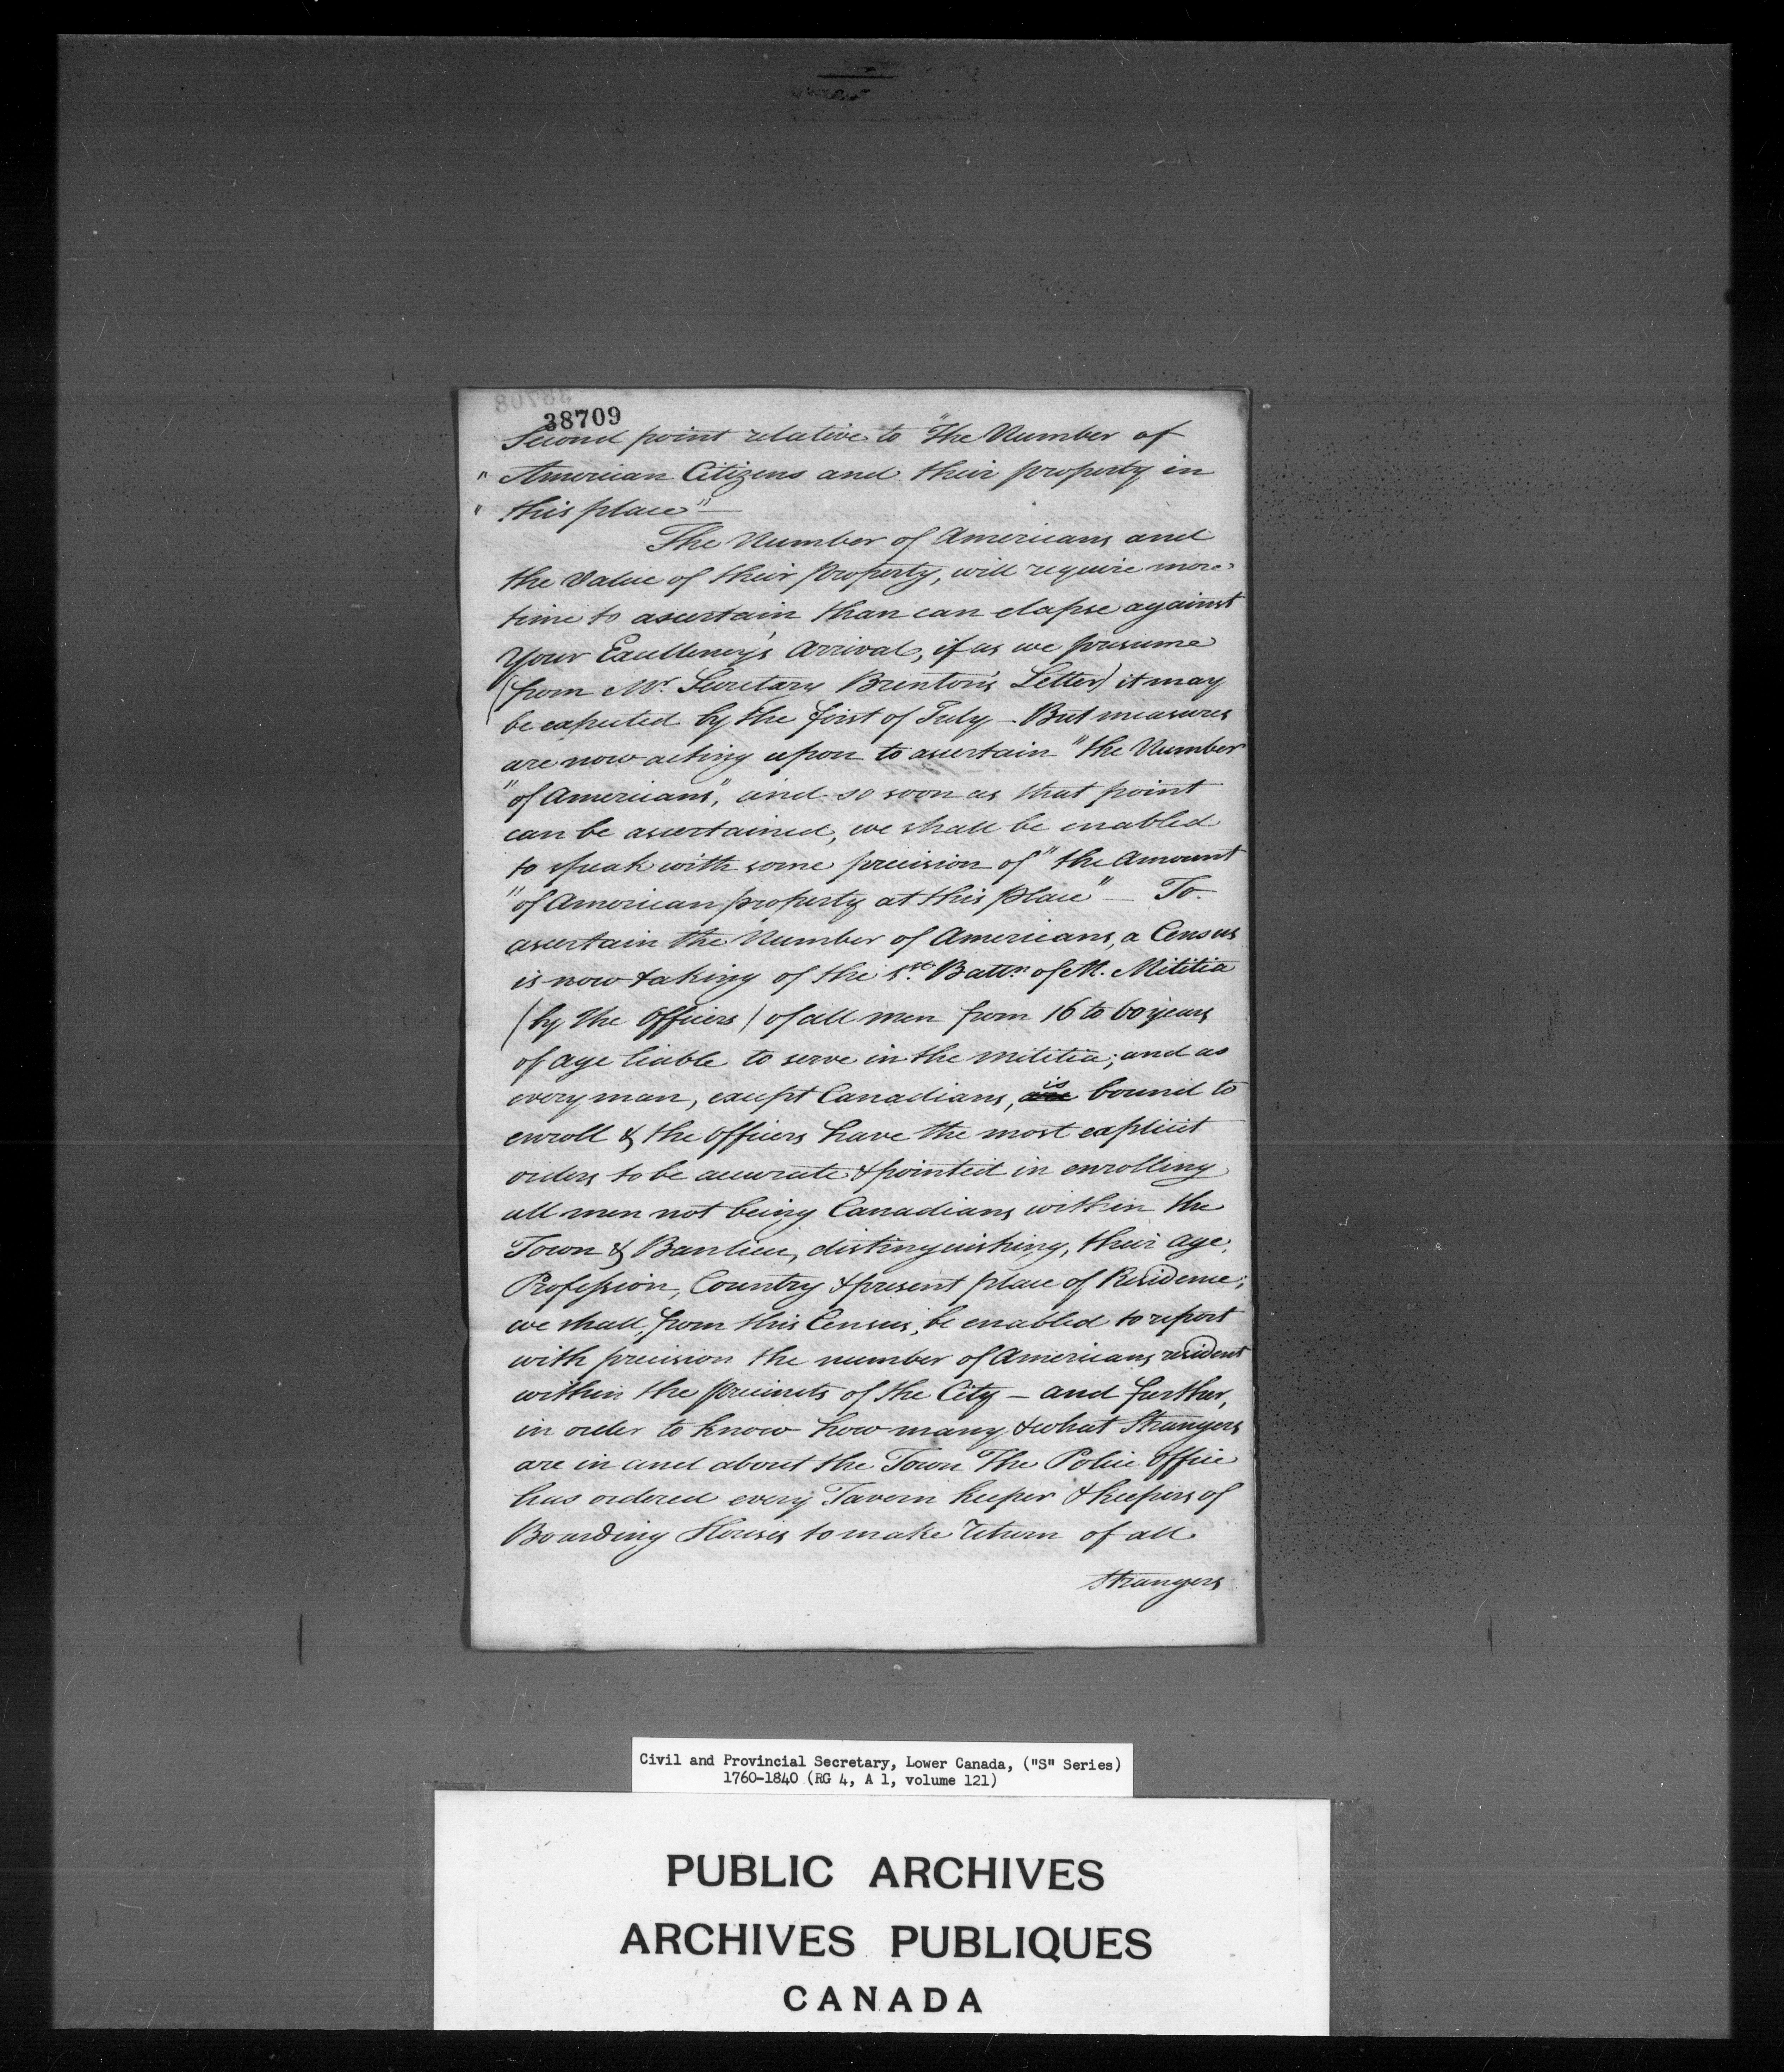 38708
38709
Second point relative to "The Number of
" American Citizens and their property in
" this place" —
The Number of Americans and
the Value of their property, will require more
time to ascertain than can elapse against
Your Excellency's Arrival, if as we presume
(from Mr. Secretary Brenton's Letter) it may
be expected by the first of July — But measures
are now acting upon to ascertain "the Number
"of Americans", and so soon as that point
can be ascertained, we shall be enabled
to speak with some precision of "the Amount
"of American property at this place" — To
ascertain the Number of Americans, a Census
is now taking of the 1st. Battn. of M. Militia
(by the Officers) of all men from 16 to 60 years
of age liable to serve in the militia; and as
every man, except Canadians, are is bound to
enroll & the Officers have the most explicit
orders to be accurate & pointed in enrolling
all men not being Canadians within the
Town & Banlieu, distinguishing, their age,
Profession, Country & present place of Residence;
we shall, from this Census, be enabled to report
with precision the number of Americans resident
within the precincts of the City — and further,
in order to know how many & what Strangers
are in and about the Town The Police Office
has ordered every Tavern keeper & keepers of
Boarding Houses to make return of all
Strangers
Civil and Provincial Secretary, Lower Canada, ("S" Series)
1760-1840 (RG 4, A 1, volume 121)
PUBLIC ARCHIVES
ARCHIVES PUBLIQUES
CANADA